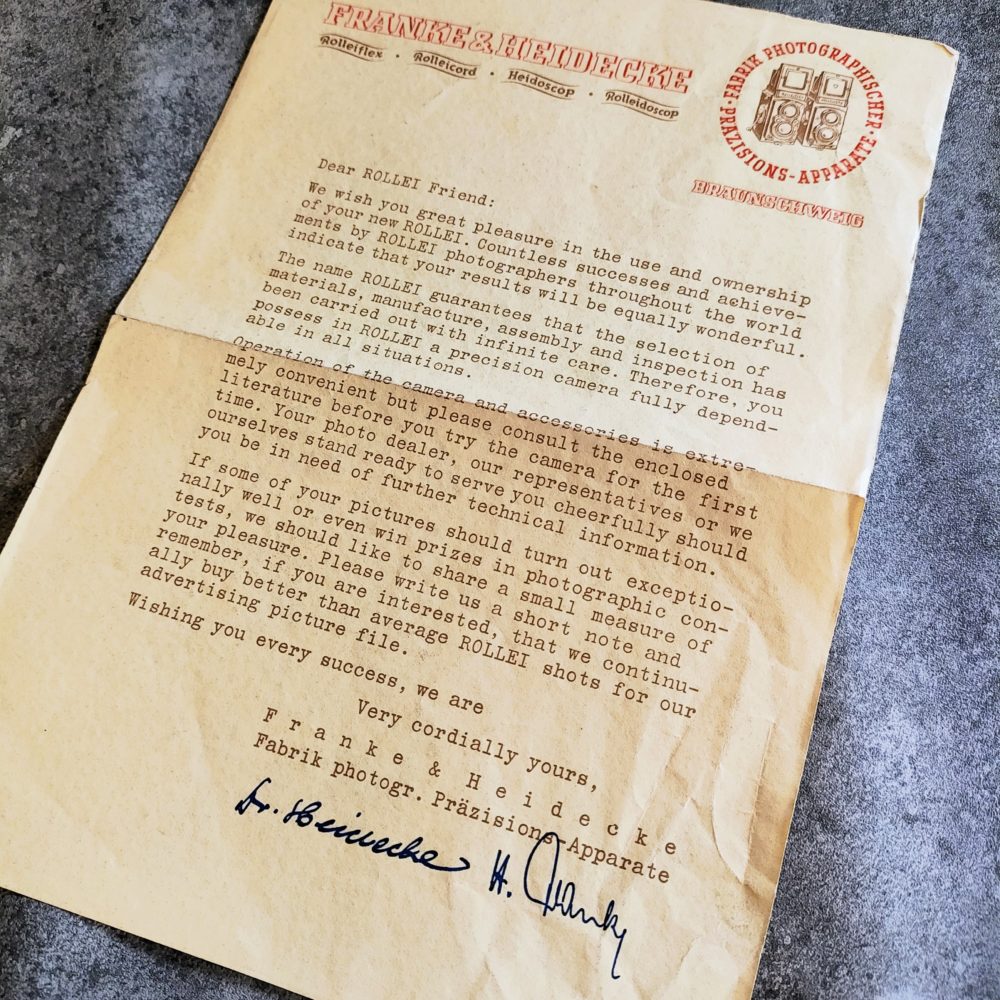 FRANKE & HEIDECKE
Rolleiflex · Rolleicord · Heidoscop · Rolleidoscop
FABRIK PHOTOGRAPHISCHER PRÄZISIONS-APPARATE
BRAUNSCHWEIG
Dear ROLLEI Friend:
We wish you great pleasure in the use and ownership
of your new ROLLEI. Countless successes and achieve-
ments by ROLLEI photographers throughout the world
indicate that your results will be equally wonderful.
The name ROLLEI guarantees that the selection of
materials, manufacture, assembly and inspection has
been carried out with infinite care. Therefore, you
possess in ROLLEI a precision camera fully depend-
able in all situations.
Operation of the camera and accessories is extre-
mely convenient but please consult the enclosed
literature before you try the camera for the first
time. Your photo dealer, our representatives or we
ourselves stand ready to serve you cheerfully should
you be in need of further technical information.
If some of your pictures should turn out exceptio-
nally well or even win prizes in photographic con-
tests, we should like to share a small measure of
your pleasure. Please write us a short note and
remember, if you are interested, that we continu-
ally buy better than average ROLLEI shots for our
advertising picture file.
Wishing you every success, we are
Very cordially yours,
F r a n k e & H e i d e c k e
Fabrik photogr. Präzisions-Apparate
Dr. Heidecke H. Franke